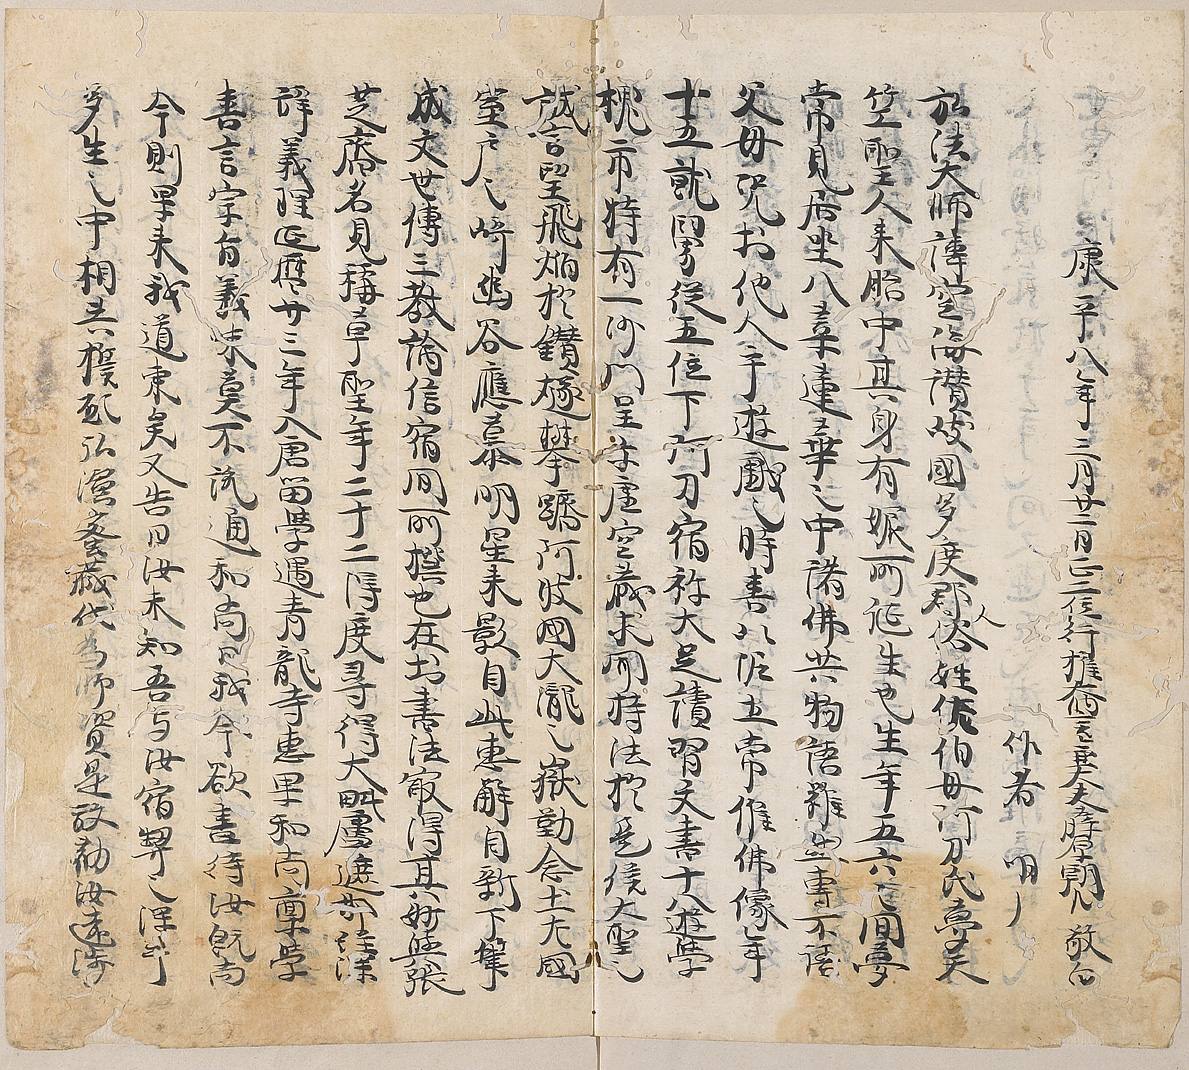 康平八年三月廿二日正二位行權大納言兼大夫藤原朝臣敬白
作者明
弘法大師諱空海讃岐國多度郡人俗姓佐伯母阿刀氏夢天
竺聖人来胎中其身有娠一所誕生也生年五六之間夢
常見居坐八葉蓮華之中諸佛共物語雖然專不語
父母況於他人乎遊戯之時善以泥土常作佛像年
十五就舅從五位下阿刀宿祢大足讀習文書十八遊學
槐市時有一沙門呈示虚空藏求聞持法於是後大聖之
誠言望飛焔於鑽燧攀躋阿波國大瀧之嶽勤念土左國
室戸之崎幽谷應慕明星来影自此惠解日新下筆
成文世傳三教論信宿間所撰也在於書法最得其妙與張
芝齊名見稱草聖年二十二得度尋得大毗盧遮那
譯義理延暦廿三年入唐留學遇青龍寺惠果和尚稟學
書言宗旨義味莫不流通和尚曰我今欲書待汝既尚
今則早来我道東矣又告曰汝未知吾与汝宿契之深乎
多生之中相共誓願弘演密藏代為師資是故勸汝遠渉